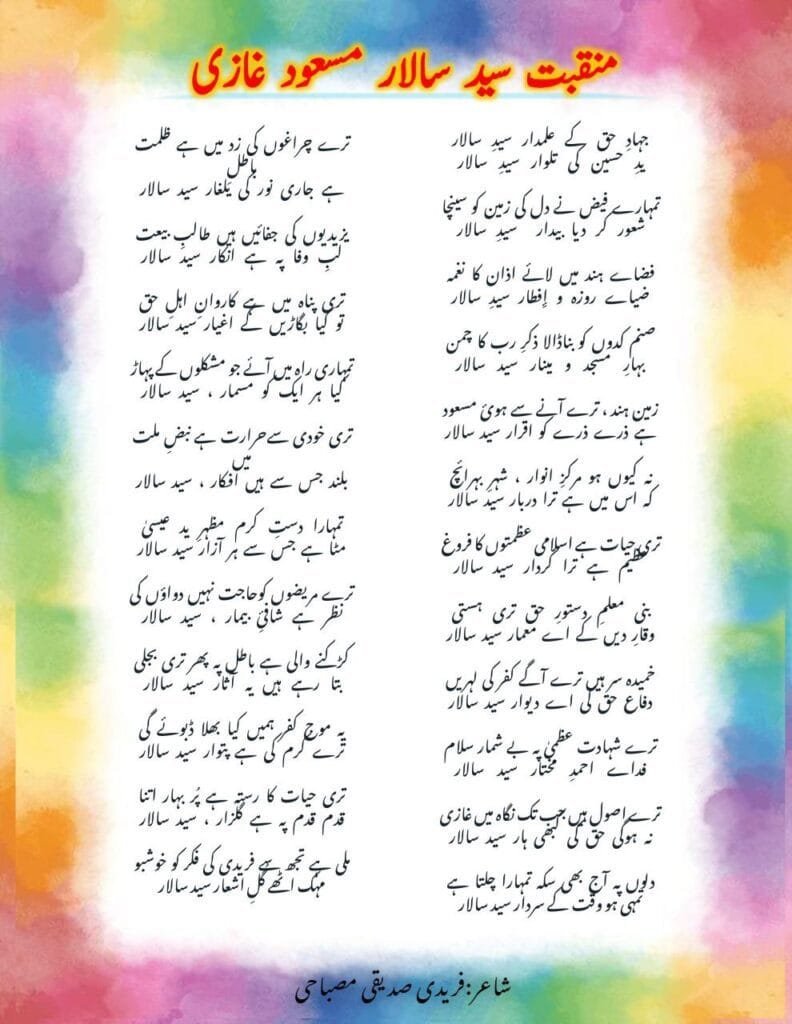 منقبت سید سالار مسعود غازی
جہادِ حق کے علمدار سیدِ سالار
یدِ حسین کی تلوار سیدِ سالار
تمہارے فیض نے دل کی زمین کو سینچا
شعور کر دیا بیدار سیدِ سالار
فضاے ہند میں لائے اذان کا نغمہ
ضیاے روزہ و إفطار سیدِ سالار
صنم کدوں کو بناڈالا ذکرِ رب کا چمن
بہارِ مسجد و مینار سید سالار
زمین ہند ، ترے آنے سے ہوئ مسعود
ہے ذرے ذرے کو اقرار سید سالار
نہ کیوں ہو مرکزِ انوار ، شہرِ بہرائچ
کہ اس میں ہے ترا دربار سید سالار
تری حیات ہے اسلامی عظمتوں کا فروغ
عظیم ہے ترا کردار سید سالار
بنی معلمِ دستورِ حق تری ہستی
وقارِ دیں کے اے معمار سید سالار
خمیدہ سر ہیں ترے آگے کفر کی لہریں
دفاع حق کی اے دیوار سید سالار
ترے شہادت عظمیٰ پہ بے شمار سلام
فداے احمدِ مختار سید سالار
ترے اصول ہیں جب تک نگاہ میں غازی
نہ ہوگی حق کی کبھی ہار سید سالار
دلوں پہ آج بھی سکہ تمہارا چلتا ہے
تمہی ہو وقت کے سردار سید سالار
ترے چراغوں کی زد میں ہے ظلمت
باطل
ہے جاری نور کی یَلغار سید سالار
یزیدیوں کی جفائیں ہیں طالبِ بیعت
لبِ وفا پہ ہے انکار سید سالار
تری پناہ میں ہے کاروانِ اہلِ حق
تو کیا بگاڑیں گے اغیار سید سالار
تمہاری راہ میں آئے جو مشکلوں کے پہاڑ
کیا ہر ایک کو مسمار ، سید سالار
تری خودی سے حرارت ہے نبضِ ملت
میں
بلند جس سے ہیں افکار ، سید سالار
تمہارا دستِ کرم مظہرِ یدِ عیسیٰ
مٹا ہے جس سے ہر آزار سید سالار
ترے مریضوں کو حاجت نہیں دواؤں کی
نظر ہے شافیِٔ بیمار ، سید سالار
کڑکنے والی ہے باطل پہ پھر تری بجلی
بتا رہے ہیں یہ آثار سید سالار
یہ موجِ کفر ہمیں کیا بھلا ڈبوئے گی
ترے کرم کی ہے پتوار سید سالار
تری حیات کا رستہ ہے پُر بہار اتنا
قدم قدم پہ ہے گلزار ، سید سالار
ملی ہے تجھ سے فریدی کی فکر کو خوشبو
مہک اٹھے گلِ اشعار سید سالار
شاعر:فریدی صدیقی مصباحی